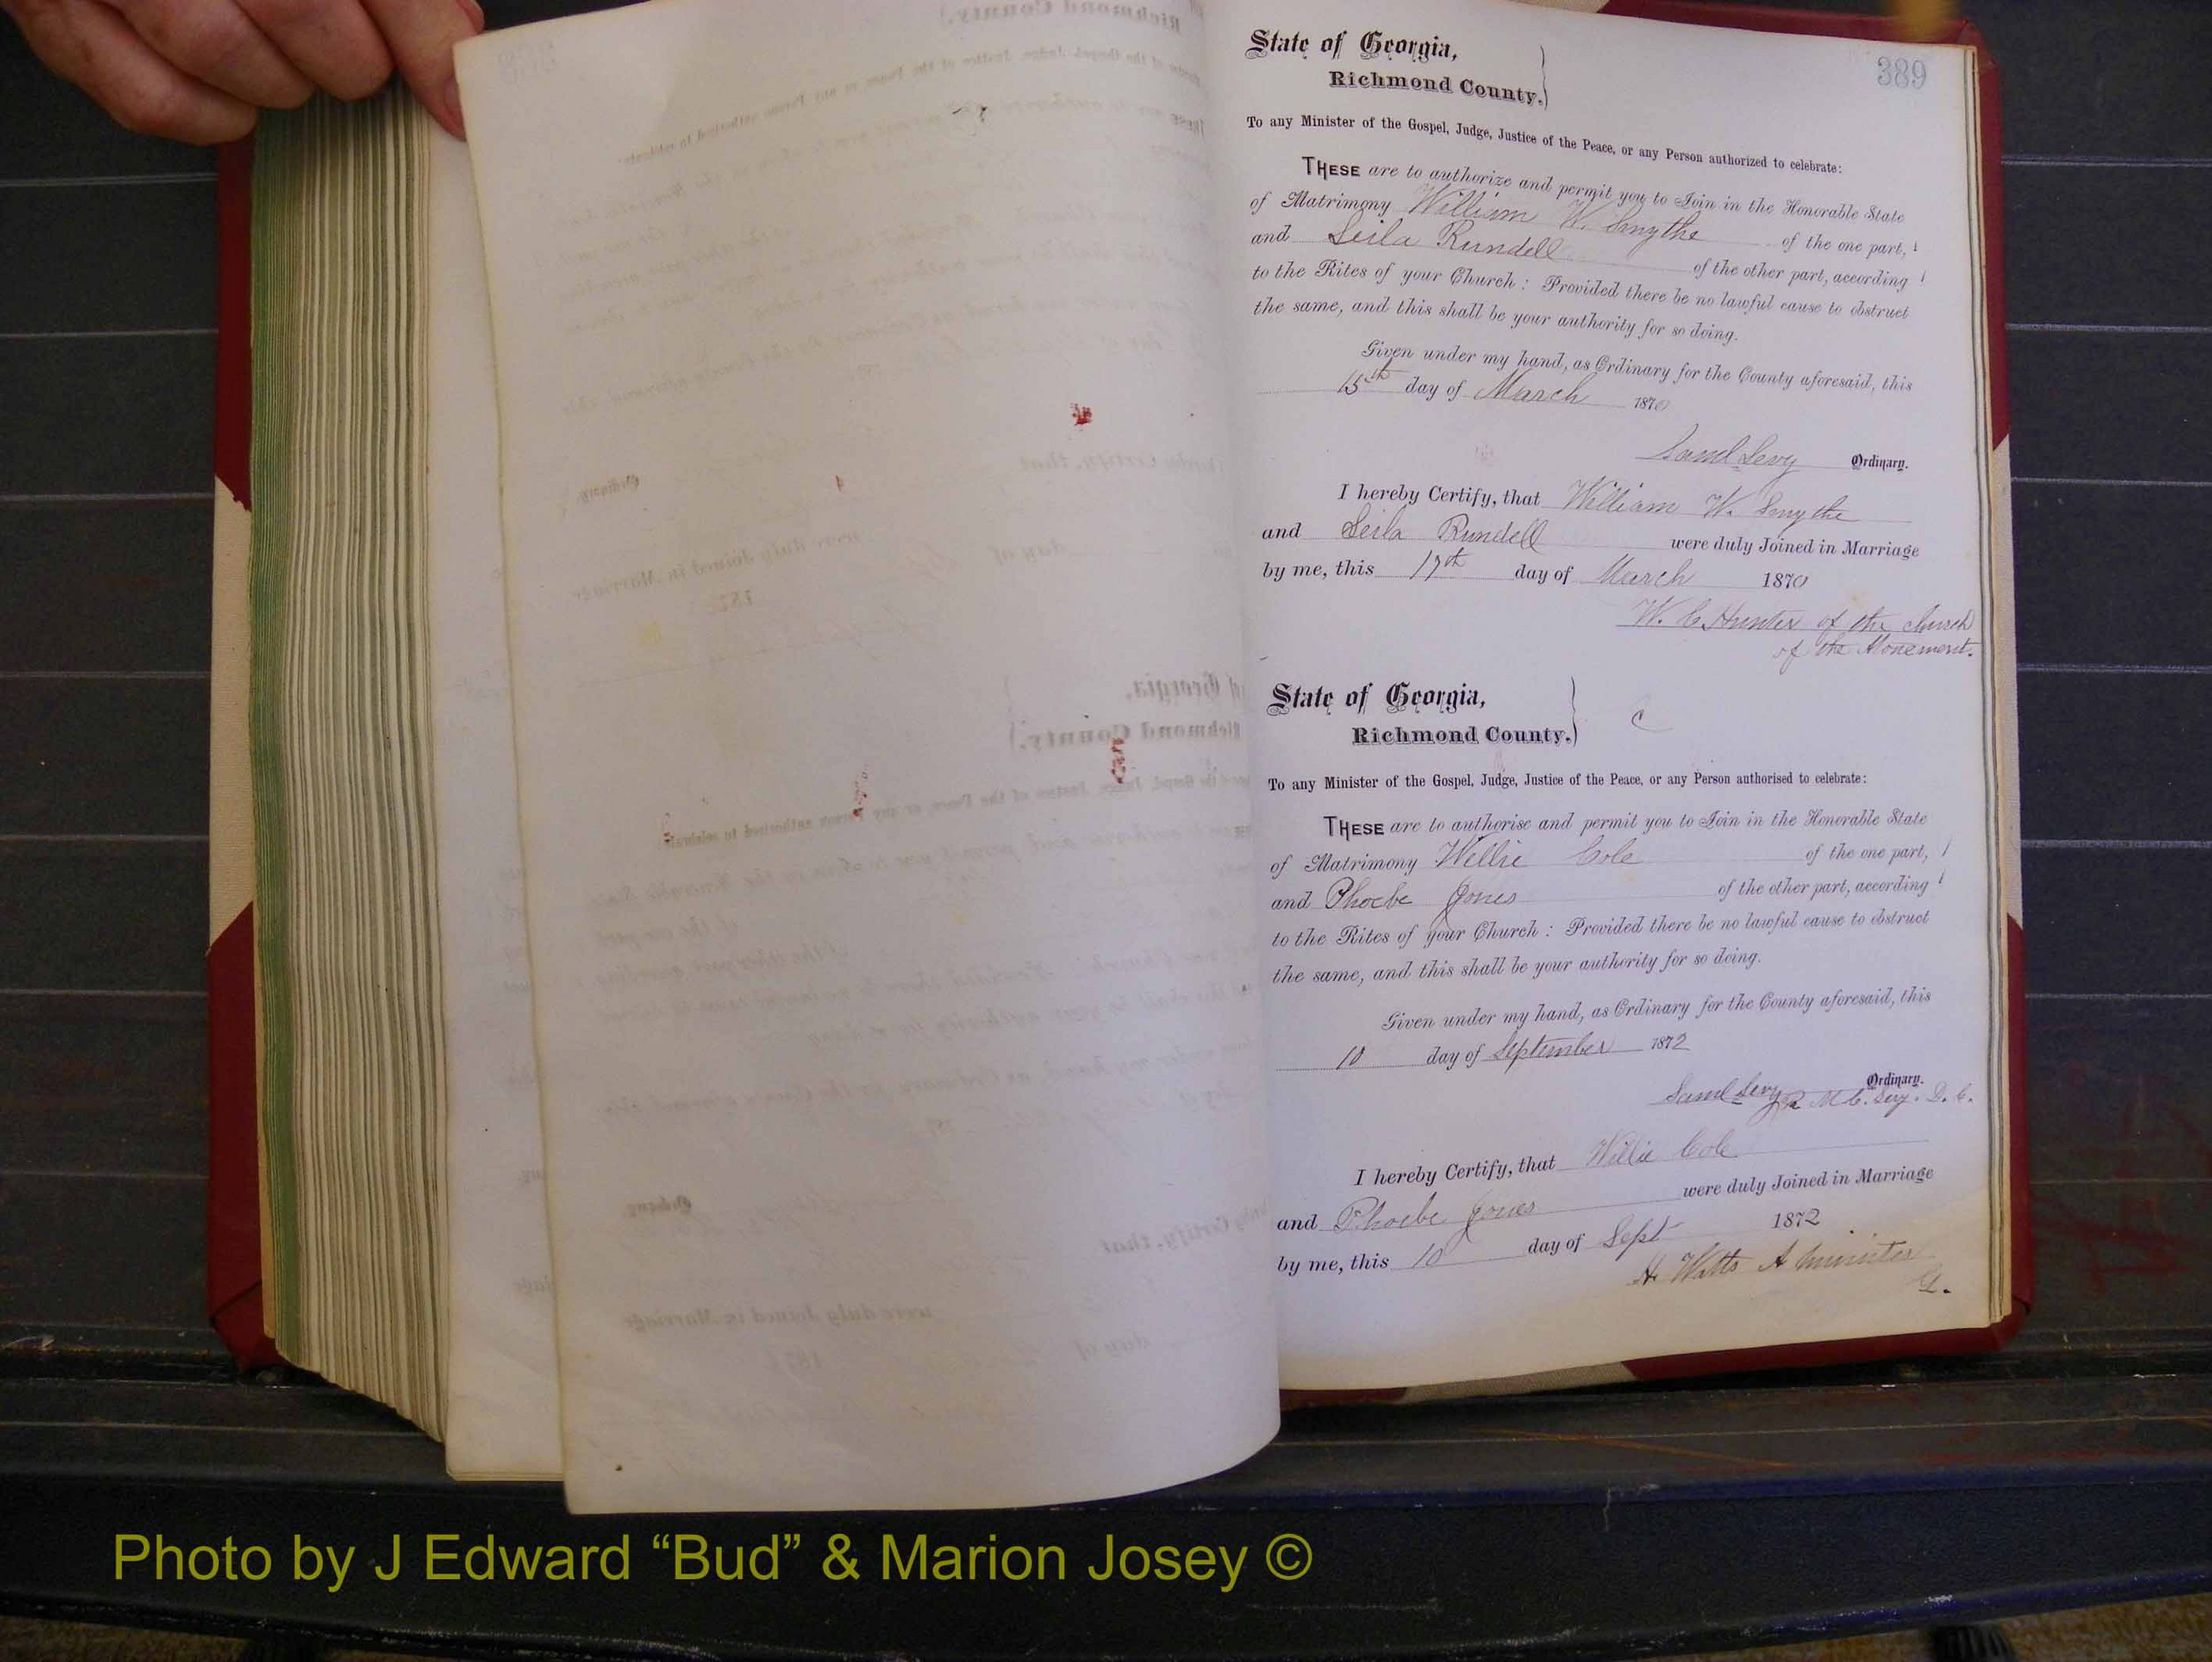 389
State of Georgia,
Richmond County.
To any Minister of the Gospel, Judge, Justice of the Peace, or any Person authorized to celebrate:
THESE are to authorize and permit you to Join in the Honorable State
of Matrimony William W. Smythe of the one part,
and Leila Rundell of the other part, according
to the Rites of your Church: Provided there be no lawful cause to obstruct
the same, and this shall be your authority for so doing.
Given under my hand, as Ordinary for the County aforesaid, this
15th day of March 1870
Saml Levy Ordinary.
I hereby Certify, that William W. Smythe
and Leila Rundell were duly Joined in Marriage
by me, this 17th day of March 1870
W. C. Hunter of the church
of the Atonement.
State of Georgia,
Richmond County. C
To any Minister of the Gospel, Judge, Justice of the Peace, or any Person authorised to celebrate:
THESE are to authorise and permit you to Join in the Honorable State
of Matrimony Willie Cole of the one part,
and Phoebe Jones of the other part, according
to the Rites of your Church: Provided there be no lawful cause to obstruct
the same, and this shall be your authority for so doing.
Given under my hand, as Ordinary for the County aforesaid, this
10 day of September 1872
Ordinary.
Saml Levy M C. Levy. D. C.
I hereby Certify, that Willie Cole
and Phoebe Jones were duly Joined in Marriage
by me, this 10 day of Sept 1872
H Watts A minister
G.
Photo by J Edward “Bud” & Marion Josey ©